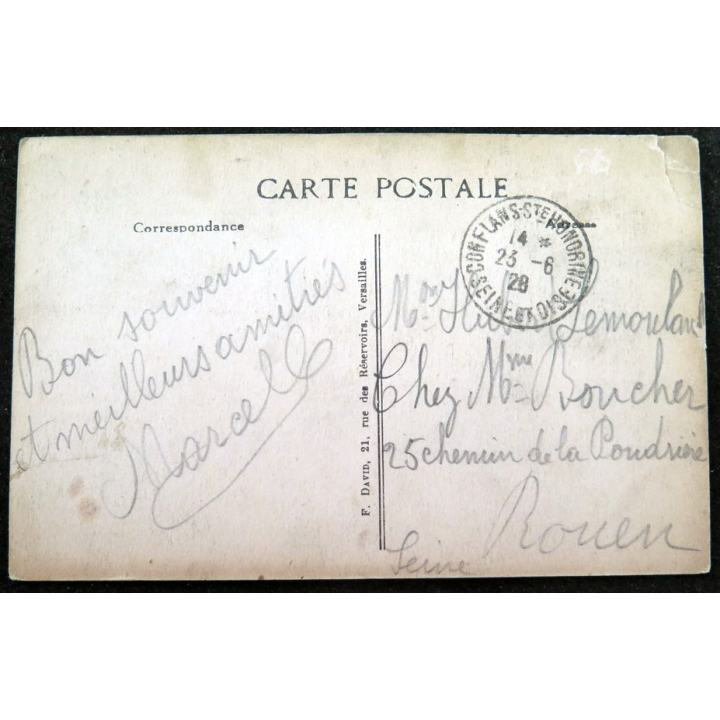 CARTE POSTALE
Correspondance
Adresse
CONFLANS-STE HONORINE
14 *
23 -6
28
SEINE ET OISE
Bon souvenir
et meilleurs amitiés
Marcel
F. DAVID, 21, rue des Réservoirs, Versailles.
Chez Mme Boucher
25 chemin de la Poudrière
Rouen
Seine